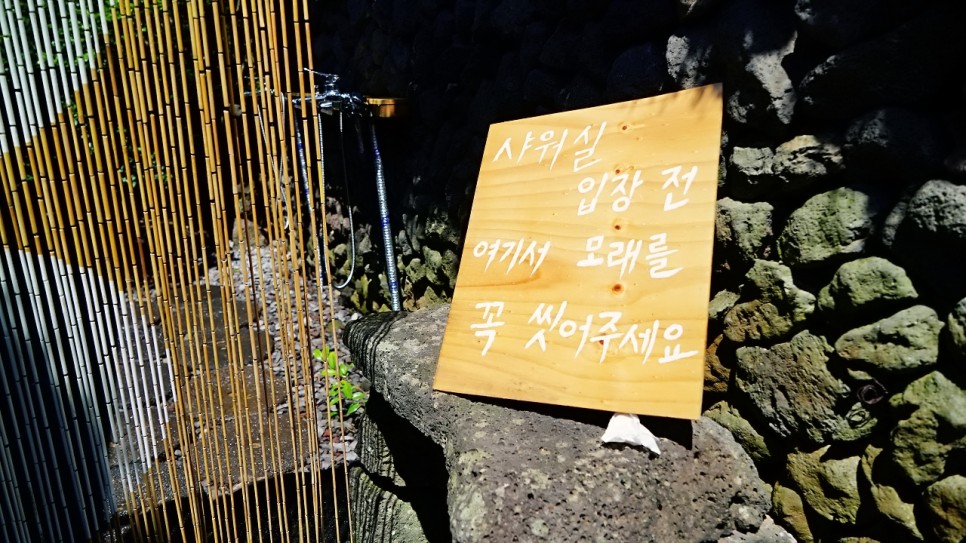 샤워실
입장 전
여기서 모래를
꼭 씻어주세요